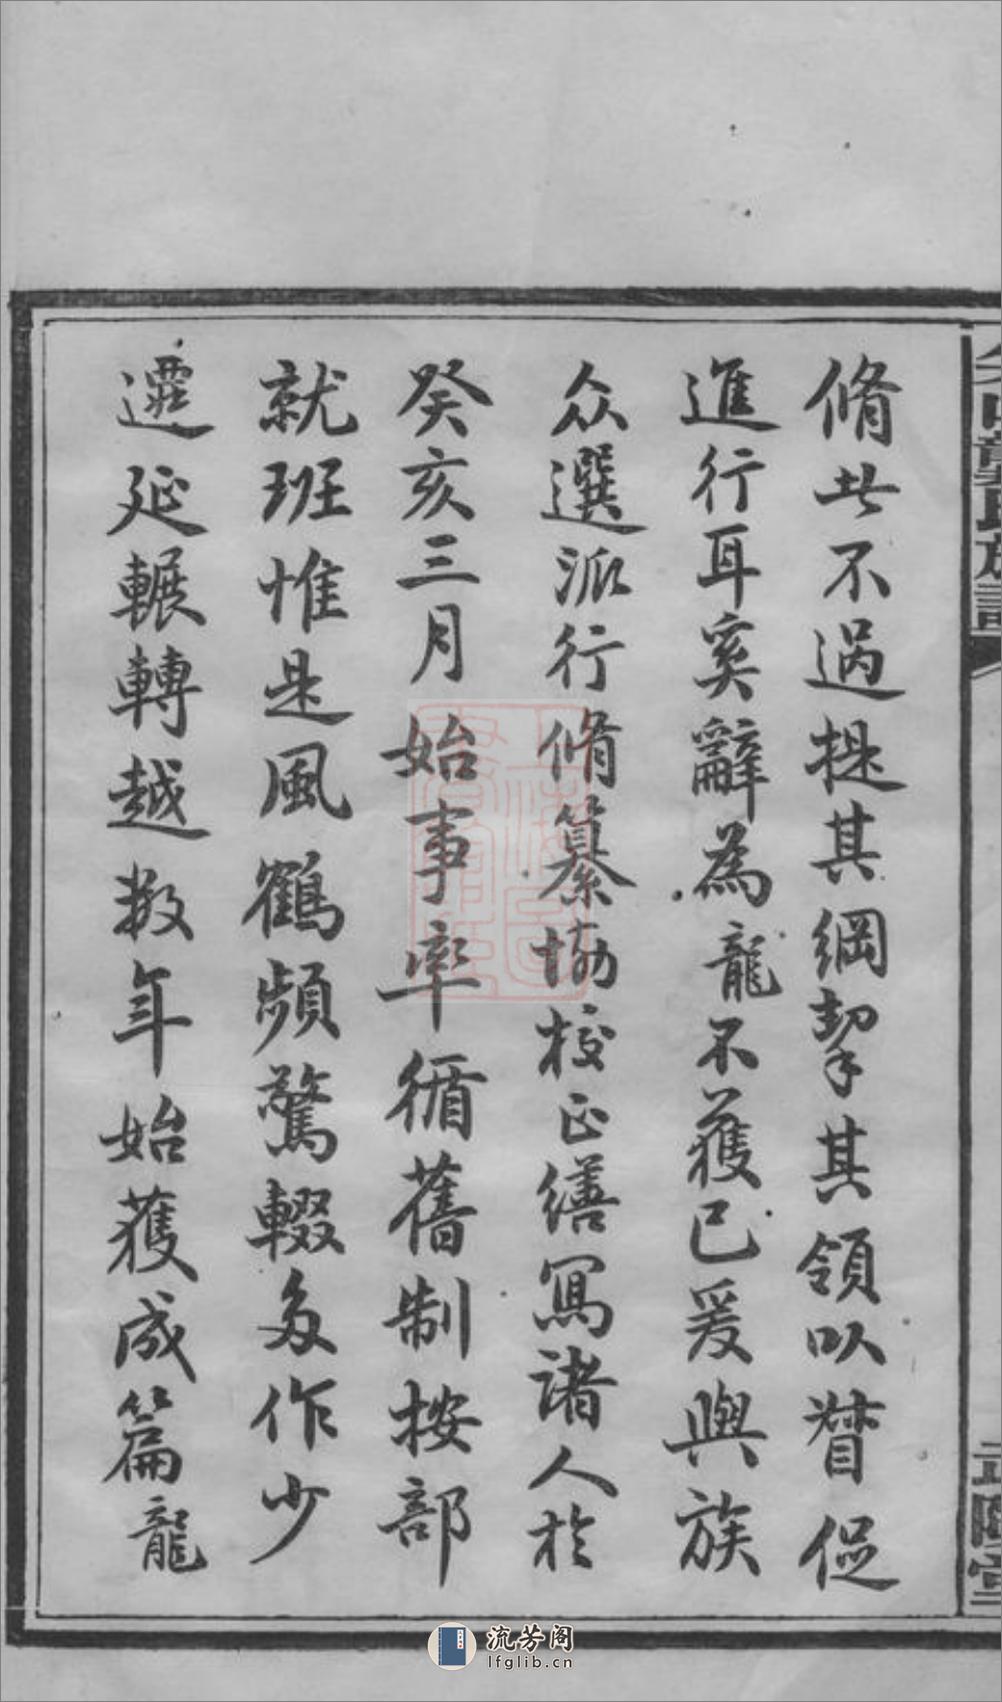 脩此不過提其綱挈其領以督促
進行耳奚辭為龍不獲已爰與族
众選派行脩纂協校正繕寫諸人於
癸亥三月始事率循舊制按部
就班惟是風鶴頻驚輟多作少
遷延輾轉越数年始獲成篇龍
龔氏族譜
武陵堂
流芳阁
lfglib.cn